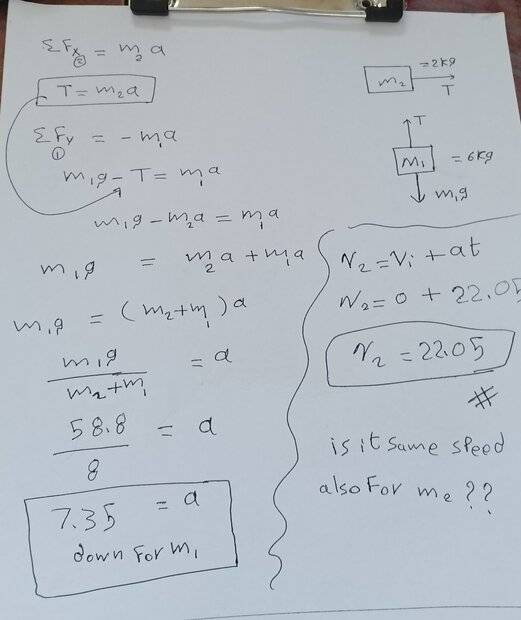 ΣFx② = m₂a
T = m₂a
ΣFy① = -m₁a
m₁g - T = m₁a
m₁g - m₂a = m₁a
m₁g = m₂a + m₁a
m₁g = (m₂+m₁)a
m₁g / m₂+m₁ = a
58.8 / 8 = a
7.35 = a
down For m₁
m₂ =2kg
T
T
m₁ =6kg
m₁g
V₂ = Vi + at
V₂ = 0 + 22.05
V₂ = 22.05
#
is it same speed
also For me ??